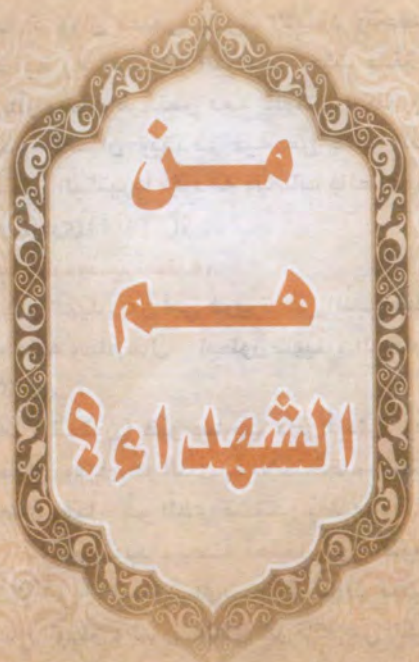 من
هم
الشهداء؟